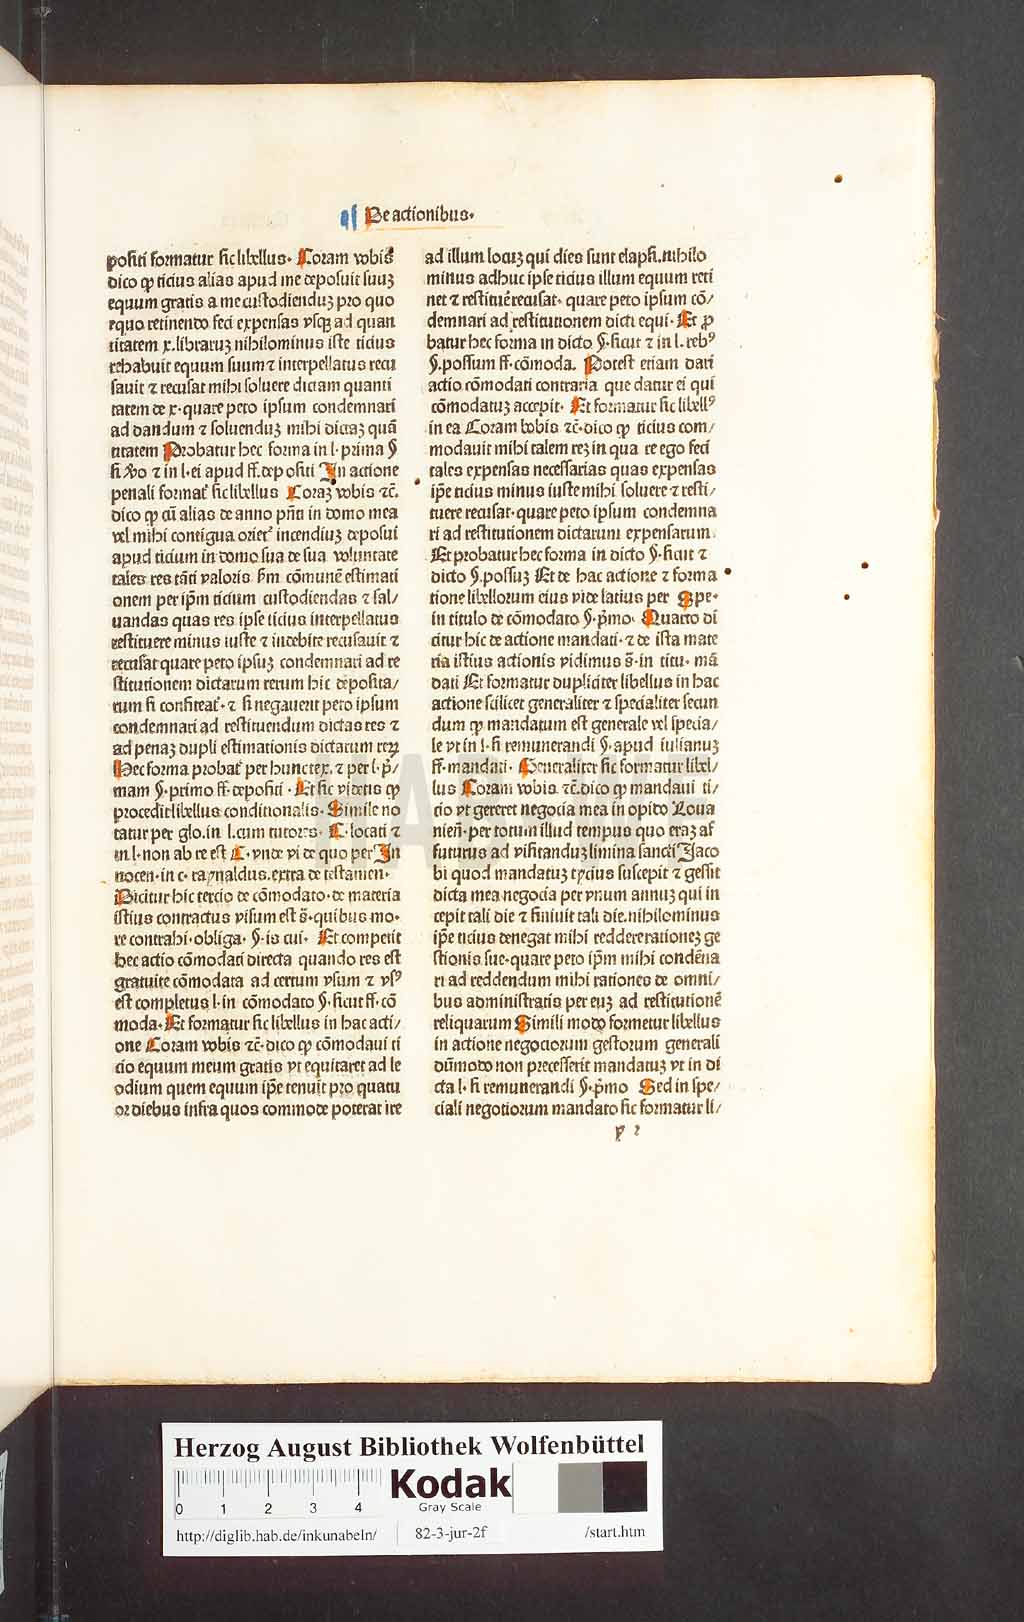 De actionibus.
positi formatur sic libellus. Coram vobis
dico ꝙ ticius alias apud me deposuit suuꝫ
equum gratis a me custodienduꝫ pro quo
equo retinendo feci expensas vsqꝫ ad quan
titatem x. libraruꝫ nihilominus iste ticius
rehabuit equum suum ⁊ interpellatus recu
sauit ⁊ recusat mihi soluere dictam quanti
tatem de x. quare peto ipsum condemnari
ad dandum ⁊ soluenduꝫ mihi dictaꝫ quā
titatem Probatur hec forma in l. prima §
si vo ⁊ in l. ei apud ff. depositi In actione
penali format᷑ sic libellus Coraꝫ vobis ⁊c̄.
dico ꝙ cū alias de anno pn̄ti in domo mea
vel mihi contigua oriet᷑ incendiuꝫ deposui
apud ticium in domo sua de sua voluntate
tales res tāti valoris km̄ cōmunē estimati
onem per ip̄m ticium custodiendas ⁊ sal/
uandas quas res ipse ticius interpellatus
restituere minus iuste ⁊ indebite recusauit ⁊
recusat quare peto ipsuꝫ condemnari ad re
stitutionem dictarum rerum hic deposita/
rum si confiteat᷑. ⁊ si negauerit peto ipsum
condemnari ad restituendum dictas res ⁊
ad penaꝫ dupli estimationis dictarum reꝝ
Hec forma probat᷑ per hunc tex. ⁊ per l. p̄/
mam §. primo ff. depositi. Et sic videtis ꝙ
procedit libellus conditionalis. Simile no
tatur per glo. in l. cum tutores. C. locati ⁊
in l. non ab re est C. vnde vi de quo per In
nocen. in c. raynaldus. extra de testamen.
Dicitur hic tercio de cōmodato. de materia
istius contractus visum est s̄. quibus mo.
re contrahi. obliga. §. is cui. Et competit
hec actio cōmodati directa quando res est
gratuite cōmodata ad certum vsum ⁊ vsꝰ
est completus l. in cōmodato §. sicut ff. cō
moda. Et formatur sic libellus in hac acti/
one Coram vobis ⁊c̄. dico ꝙ cōmodaui ti
cio equum meum gratis vt equitaret ad le
odium quem equum ip̄e tenuit pro quatu
or diebus infra quos commode poterat ire
ad illum locuꝫ qui dies sunt elapsi. nihilo
minus adhuc ipse ticius illum equum reti
net ⁊ restituē recusat. quare peto ipsum cō/
demnari ad restitutionem dicti equi. Et ꝓ
batur hec forma in dicto §. sicut ⁊ in l. rebꝰ
§. possum ff. cōmoda. Potest etiam dari
actio cōmodati contraria que datur ei qui
cōmodatuꝫ accepit. Et formatur sic libellꝰ
in ea Coram vobis ⁊c̄. dico ꝙ ticius com/
modauit mihi talem reꝫ in qua re ego feci
tales expensas necessarias quas expensas
ip̄e ticius minus iuste mihi soluere ⁊ resti/
tuere recusat. quare peto ipsum condemna
ri ad restitutionem dictarum expensarum.
Et probatur hec forma in dicto §. sicut ⁊
dicto §. possuꝫ Et de hac actione ⁊ forma
tione libellorum eius vide latius per Spe.
in titulo de cōmodato §. p̄mo. Quarto di
citur hic de actione mandati. ⁊ de ista mate
ria istius actionis vidimus s̄. in titu. mā
dati Et formatur dupliciter libellus in hac
actione scilicet generaliter ⁊ specialiter secun
dum ꝙ mandatum est generale vel specia/
le vt in l. si remunerandi §. apud iulianuꝫ
ff. mandati. Generaliter sic formatur libel/
lus Coram vobis ⁊c̄. dico ꝙ mandaui ti/
cio vt gereret negocia mea in opido Loua
nien̄. per totum illud tempus quo eraꝫ af
futurus ad visitanduꝫ limina sancti Jaco
bi quod mandatuꝫ tycius suscepit ⁊ gessit
dicta mea negocia per vnum annuꝫ qui in
cepit tali die ⁊ finiuit tali die. nihilominus
ip̄e ticius denegat mihi reddere rationeꝫ ge
stionis sue. quare peto ip̄m mihi condēna
ri ad reddendum mihi rationes de omni/
bus administratis per euꝫ ad restitutionē
reliquarum Simili modo formetur libellus
in actione negociorum gestorum generali
dūmodo non precesserit mandatuꝫ vt in di
cta l. si remunerandi §. p̄mo Sed in spe/
ciali negotiorum mandato sic formatur li/
HAB WF
Herzog August Bibliothek Wolfenbüttel
0 1 2 3 4
Kodak
Gray Scale
http://diglib.hab.de/inkunabeln/ 82-3-jur-2f /start.htm